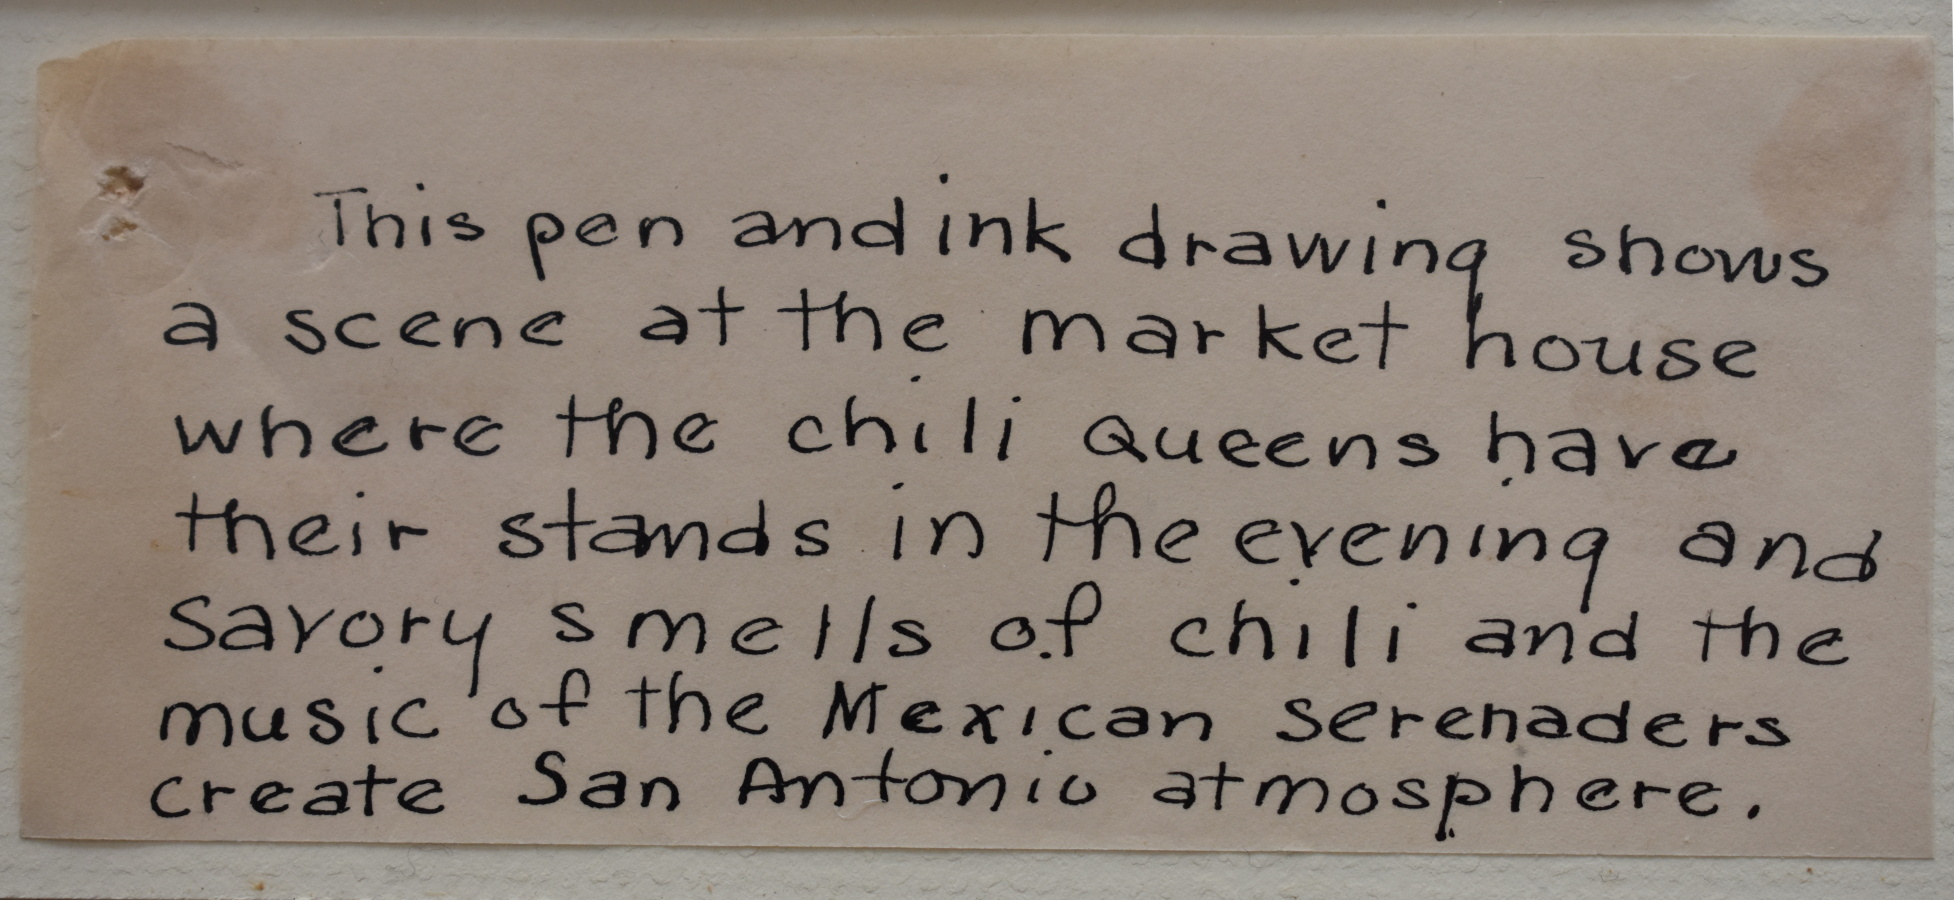 This pen and ink drawing shows
a scene at the market house
where the chili Queens have
their stands in the evening and
savory smells of chili and the
music of the Mexican serenaders
create San Antonio atmosphere.